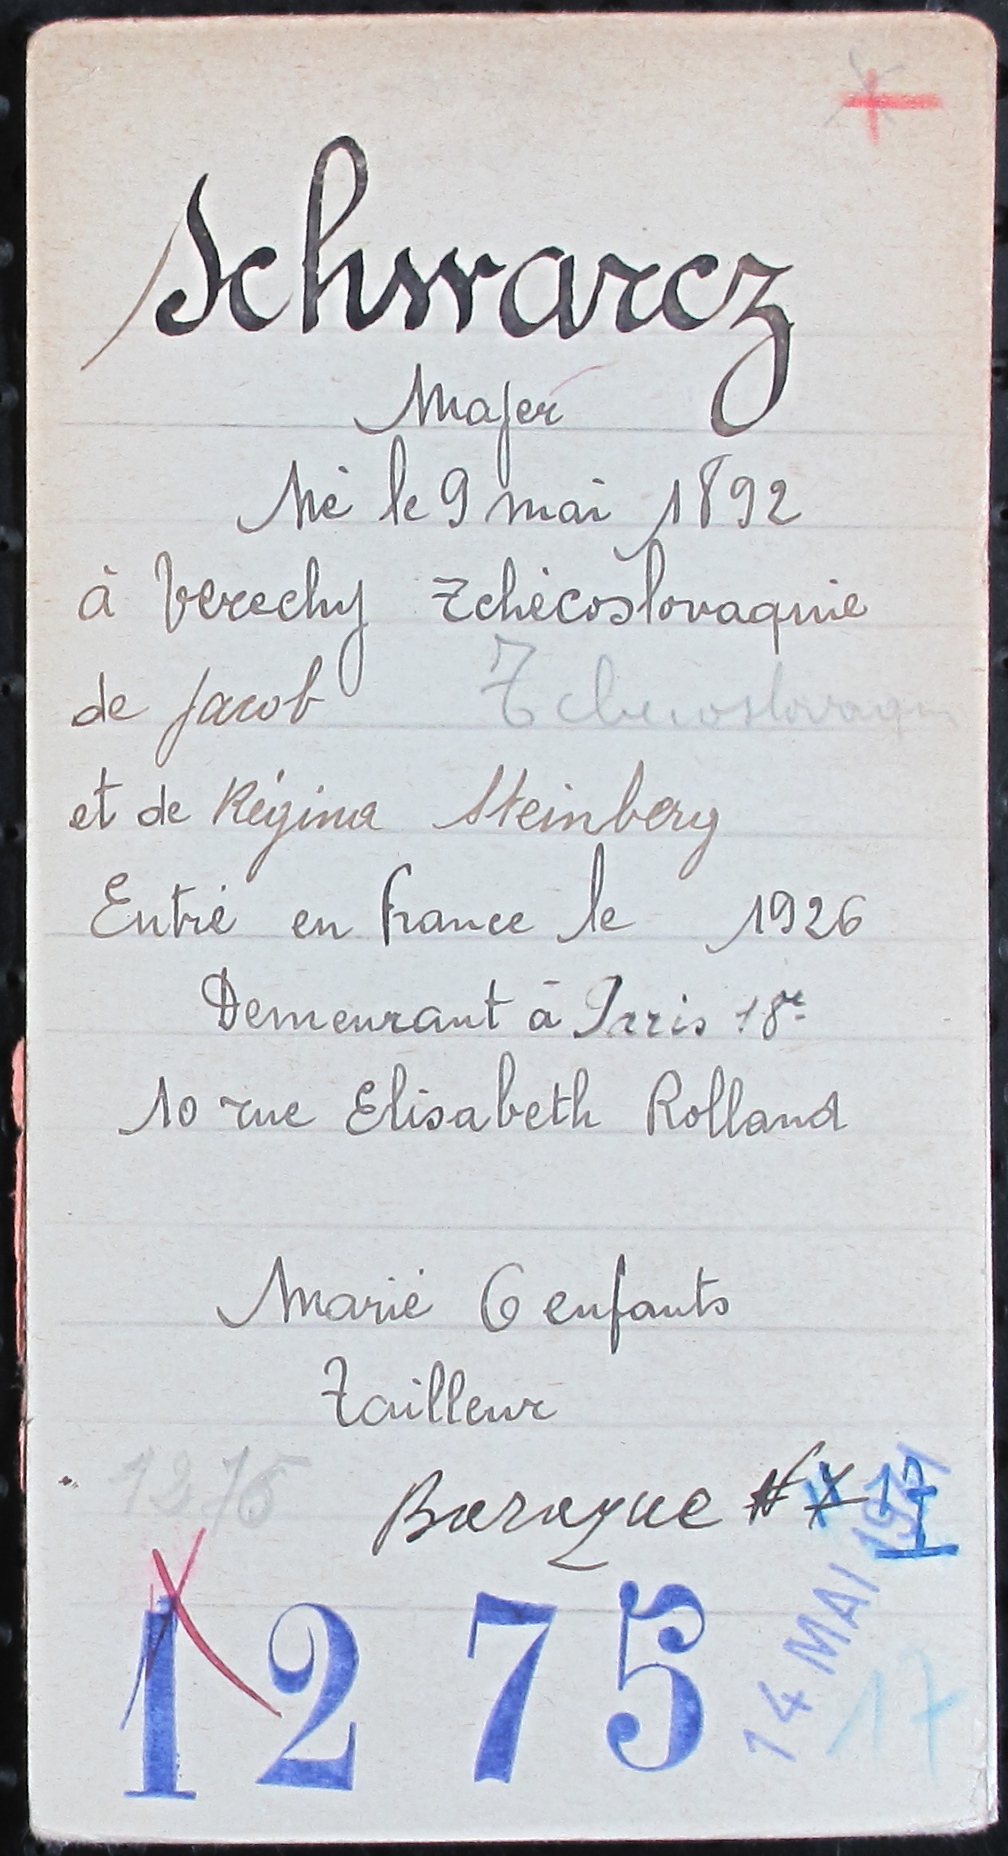 Schwarcz
Majer
Né le 9 mai 1892
à Verechy Tchécoslovaquie
de Jacob Tchecoslovaqu
et de Régina Steinberg
Entré en France le 1926
Demeurant à Paris 18e
10 rue Elisabeth Rolland
Marié 6 enfants
Tailleur
1275
Baraque
14 MAI 1941
1275
17